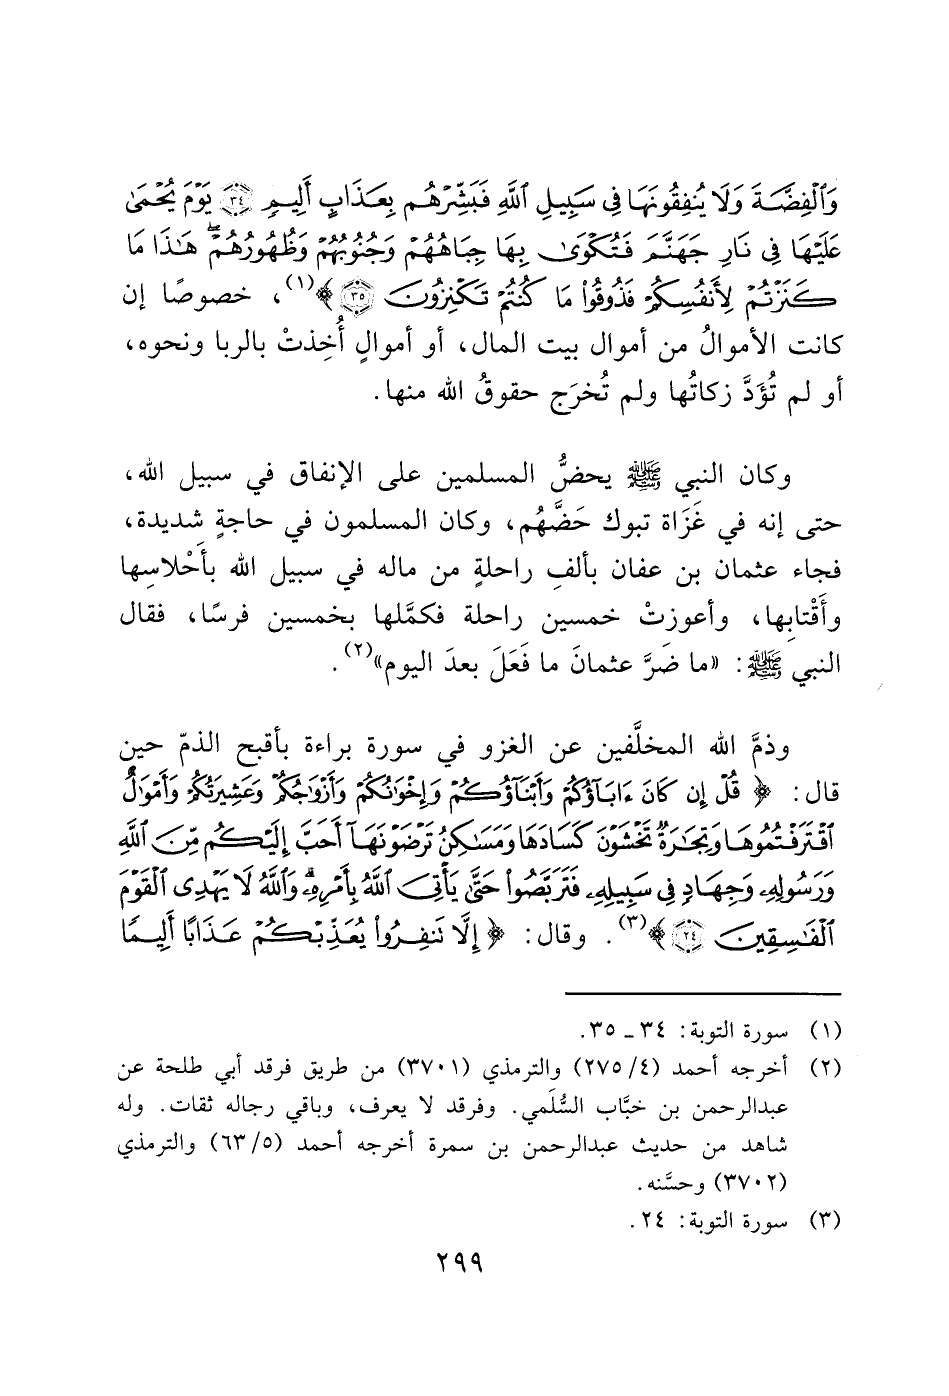 وَٱلْفِضَّةَ وَلَا يُنفِقُونَهَا فِى سَبِيلِ ٱللَّهِ فَبَشِّرْهُم بِعَذَابٍ أَلِيمٍ ٣٤ يَوْمَ يُحْمَىٰ
عَلَيْهَا فِى نَارِ جَهَنَّمَ فَتُكْوَىٰ بِهَا جِبَاهُهُمْ وَجُنُوبُهُمْ وَظُهُورُهُمْ ۖ هَٰذَا مَا
كَنَزْتُمْ لِأَنفُسِكُمْ فَذُوقُوا۟ مَا كُنتُمْ تَكْنِزُونَ ٣٥ ﴾(١)، خصوصًا إن
كانت الأموالُ من أموال بيت المال، أو أموالٍ أُخِذتْ بالربا ونحوه،
أو لم تُؤَدَّ زكاتُها ولم تُخرَج حقوقُ الله منها.
وكان النبي ﷺ يحضُّ المسلمين على الإنفاق في سبيل الله،
حتى إنه في غَزَاة تبوك حَضَّهُم، وكان المسلمون في حاجةٍ شديدة،
فجاء عثمان بن عفان بألفِ راحلةٍ من ماله في سبيل الله بأَحْلاسِها
وأَقْتابِها، وأعوزتْ خمسين راحلة فكمَّلها بخمسين فرسًا، فقال
النبي ﷺ: «ما ضَرَّ عثمانَ ما فَعَلَ بعدَ اليوم»(٢).
وذمَّ الله المخلَّفين عن الغزو في سورة براءة بأقبح الذمّ حين
قال: ﴿ قُلْ إِن كَانَ ءَابَآؤُكُمْ وَأَبْنَآؤُكُمْ وَإِخْوَٰنُكُمْ وَأَزْوَٰجُكُمْ وَعَشِيرَتُكُمْ وَأَمْوَٰلٌ
ٱقْتَرَفْتُمُوهَا وَتِجَٰرَةٌ تَخْشَوْنَ كَسَادَهَا وَمَسَٰكِنُ تَرْضَوْنَهَآ أَحَبَّ إِلَيْكُم مِّنَ ٱللَّهِ
وَرَسُولِهِۦ وَجِهَادٍ فِى سَبِيلِهِۦ فَتَرَبَّصُوا۟ حَتَّىٰ يَأْتِىَ ٱللَّهُ بِأَمْرِهِۦ ۗ وَٱللَّهُ لَا يَهْدِى ٱلْقَوْمَ
ٱلْفَٰسِقِينَ ٢٤ ﴾(٣). وقال: ﴿ إِلَّا تَنفِرُوا۟ يُعَذِّبْكُمْ عَذَابًا أَلِيمًا
(١) سورة التوبة: ٣٤ ـ ٣٥.
(٢) أخرجه أحمد (٤/ ٢٧٥) والترمذي (٣٧٠١) من طريق فرقد أبي طلحة عن
عبدالرحمن بن خبَّاب السُّلَمي. وفرقد لا يعرف، وباقي رجاله ثقات. وله
شاهد من حديث عبدالرحمن بن سمرة أخرجه أحمد (٥/ ٦٣) والترمذي
(٣٧٠٢) وحسَّنه.
(٣) سورة التوبة: ٢٤.
٢٩٩